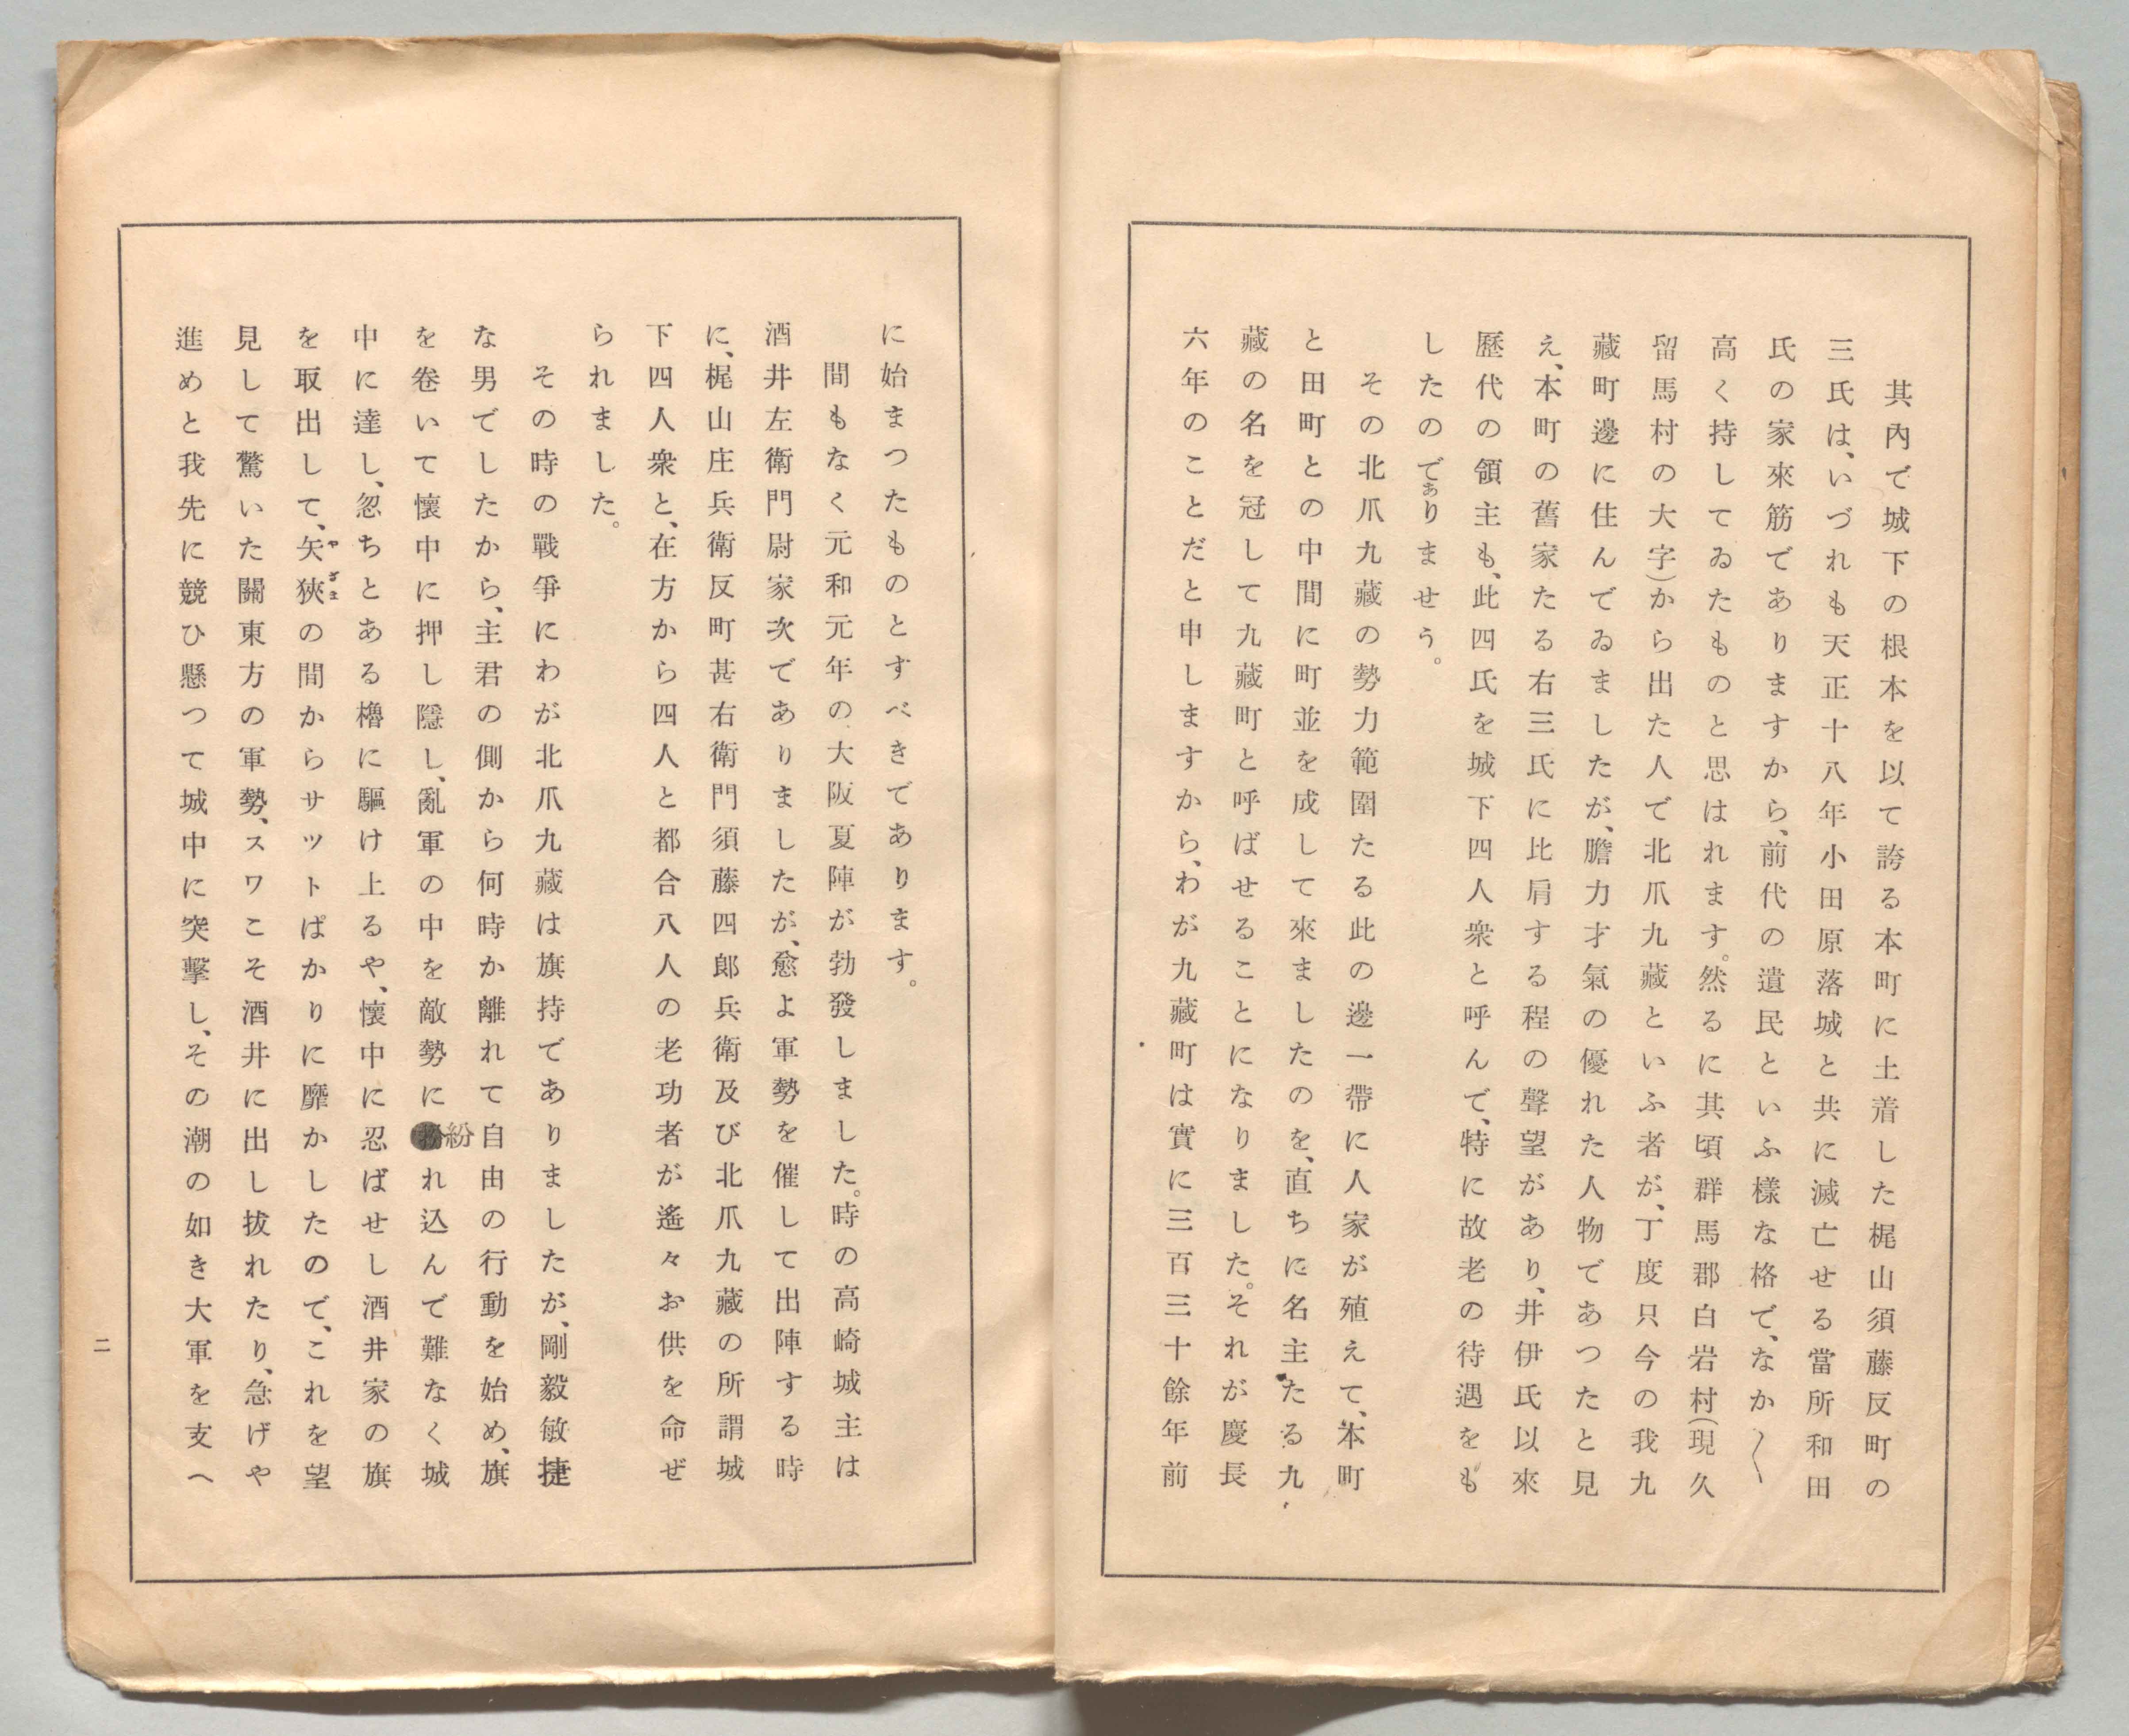 其內で城下の根本を以て誇る本町に土着した梶山須藤反町の
三氏は、いづれも天正十八年小田原落城と共に滅亡せる當所和田
氏の家來筋でありますから、前代の遺民といふ樣な格で、なか〱
高く持してゐたものと思はれます。然るに其頃群馬郡白岩村(現久
留馬村の大字)から出た人で北爪九藏といふ者が、丁度只今の我九
藏町邊に住んでゐましたが、膽力才氣の優れた人物であつたと見
え、本町の舊家たる右三氏に比肩する程の聲望があり、井伊氏以來
歷代の領主も、此四氏を城下四人衆と呼んで、特に故老の待遇をも
したのでありませう。
その北爪九藏の勢力範圍たる此の邊一帶に人家が殖えて、本町
と田町との中間に町並を成して來ましたのを、直ちに名主たる九
藏の名を冠して九藏町と呼ばせることになりました。それが慶長
六年のことだと申しますから、わが九藏町は實に三百三十餘年前
に始まつたものとすべきであります。
間もなく元和元年の大阪夏陣が勃發しました。時の高崎城主は
酒井左衛門尉家次でありましたが、愈よ軍勢を催して出陣する時
に、梶山庄兵衛反町甚右衛門須藤四郞兵衛及び北爪九藏の所謂城
下四人衆と、在方から四人と都合八人の老功者が遙々お供を命ぜ
られました。
その時の戰爭にわが北爪九藏は旗持でありましたが、剛毅敏捷
な男でしたから、主君の側から何時か離れて自由の行動を始め、旗
を卷いて懷中に押し隱し、亂軍の中を敵勢に紛れ込んで難なく城
中に達し、忽ちとある櫓に驅け上るや、懷中に忍ばせし酒井家の旗
を取出して、矢狹の間からサツトばかりに靡かしたので、これを望
見して驚いた關東方の軍勢、スワこそ酒井に出し拔れたり、急げや
進めと我先に競ひ懸つて城中に突擊し、その潮の如き大軍を支へ
二